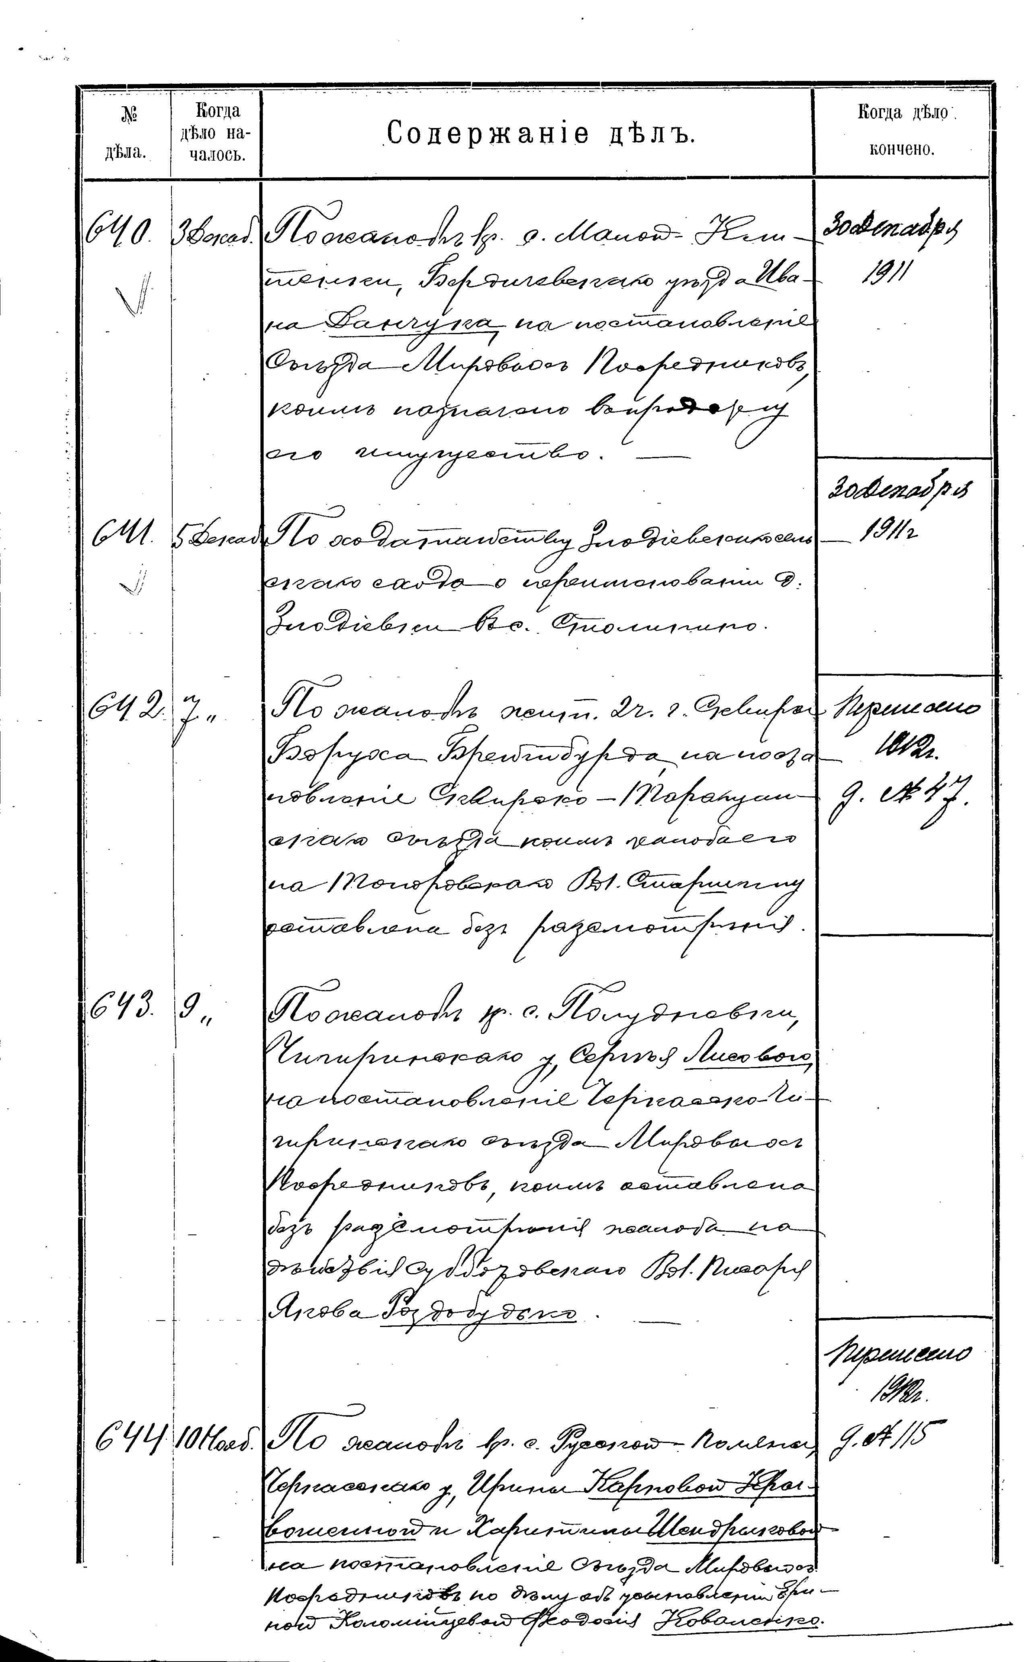 № дѣла.
Когда дѣло на-чалось.
Содержаніе дѣлъ.
Когда дѣло кончено.
640. 3 Декаб. По жалобѣ кр. с. Малой- 30 Декабря
Бердичевскаго уѣзда Ива- 1911
на Данчука, на постановленіе
Съѣзда Мировыхъ Посредниковъ,
коимъ назначено въ продажу
его имущество.
30 Декабря
641. 5 Декаб. По ходатайству Злодіевскаго сель 1911 г
скаго схода о переименованіи д.
Злодіевки въ с. Столыпино.
642. 7 " По жалобѣ жит. г. Сквиры Перенесено
Боруха Брейтбурда, на поста 1912 г.
новленіе Сквирско-Таращан д. № 47.
скаго съѣзда коимъ жалоба его
на Топоровскаго Вол. Старшину
оставлена безъ разсмотрѣнія.
643. 9 " По жалобѣ кр. с. Полудневки,
Чигиринскаго у, Сергѣя Лисового,
на постановленіе Черкасско-Чи-
гиринскаго съѣзда Мировыхъ
Посредниковъ, коимъ оставлена
безъ разсмотрѣнія жалоба на
дѣйствія Субботовскаго Вол. Писаря
Якова Роздобудько.
Перенесено
1912 г.
644 10 Нояб. По жалобѣ кр. с. Русской-Поляны, д. № 115
Черкасскаго у, Ирины Карповой Кры-
вошенной и Харитины Шендрыковой
на постановленіе Съѣзда Мировыхъ
Посредниковъ по дѣлу объ усыновленіи Ири-
ной Коломійцевой Феодосія Коваленко.